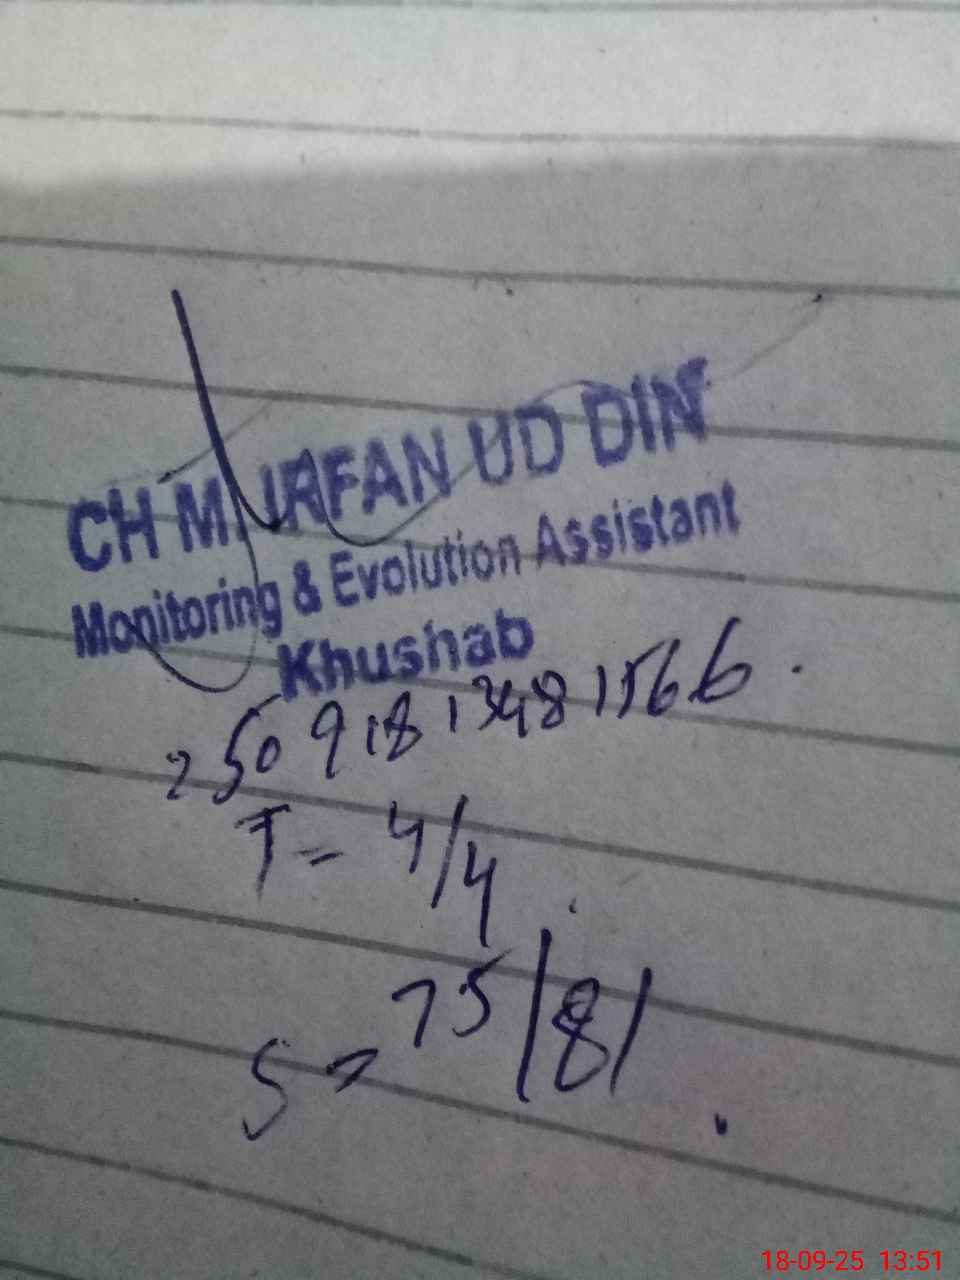 CH M. IRFAN UD DIN
Monitoring & Evolution Assistant
Khushab
25091813481566
T = 4/4
S = 75/81
18-09-25 13:51